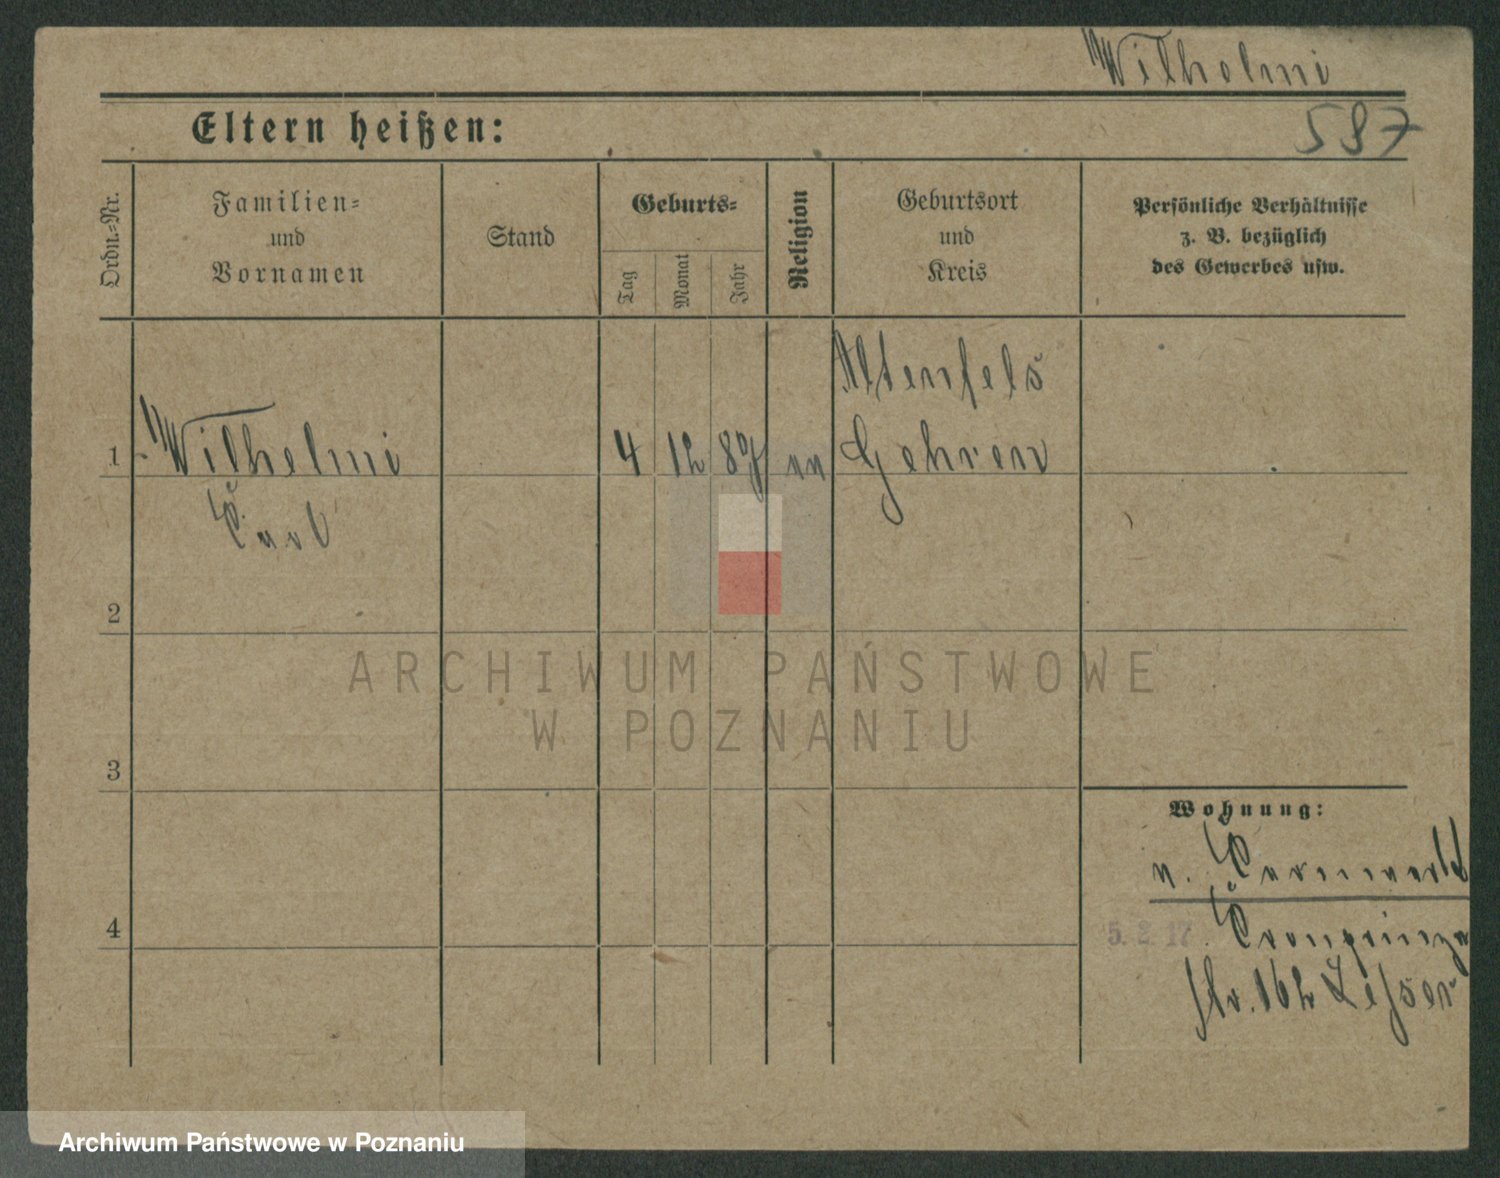 Wilhelmi
587
Eltern heißen:
Ordn.-Nr.
Familien-
und
Vornamen
Stand
Geburts-
Tag
Monat
Jahr
Religion
Geburtsort
und
Kreis
Persönliche Verhältnisse
z. B. bezüglich
des Gewerbes usw.
Altenfels
1 Wilhelmi 4 12 87 Gehren
Carl
2
ARCHIWUM PAŃSTWOWE
W POZNANIU
3
Wohnung:
v.
4
5. 2. 17 Cronprinzen
str. 162 Lesser
Archiwum Państwowe w Poznaniu